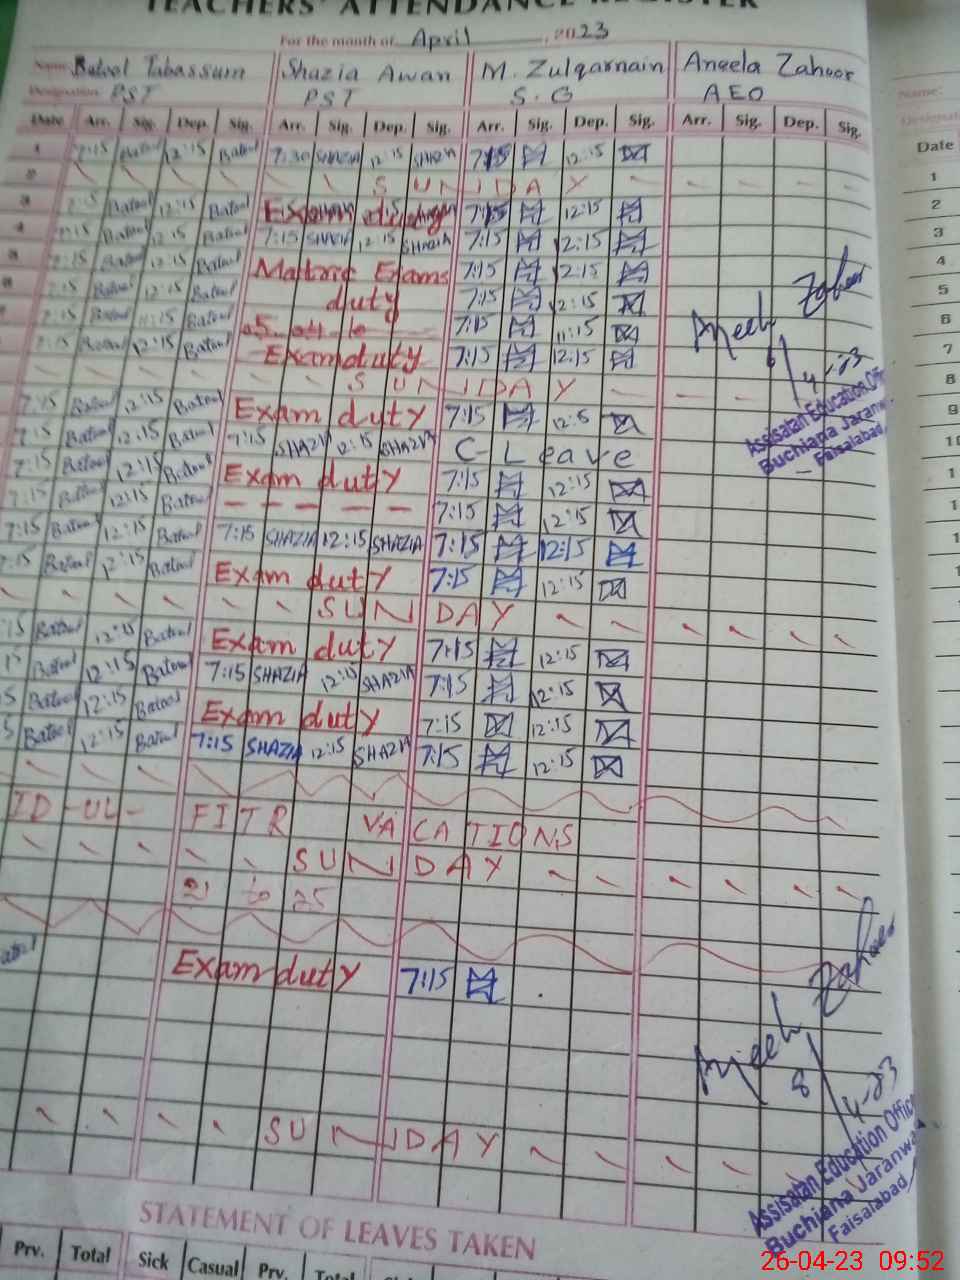 TEACHERS' ATTENDANCE REGISTER
For the month of April, 2023
Name: Batool Tabassum Shazia Awan M. Zulqarnain Aneela Zahoor
Designation PST PST S.G AEO
Date Arr. Sig. Dep. Sig. Arr. Sig. Dep. Sig. Arr. Sig. Dep. Sig. Arr. Sig. Dep. Sig.
1 7:15 Batool 12:15 Batool 7:30 SHAZIA 12:15 SHAZIA 7:15 12:15
2 SUNDAY
3 7:15 Batool 12:15 Batool Exam duty 7:15 12:15
4 7:15 Batool 12:15 Batool 7:15 SHAZIA 12:15 SHAZIA 7:15 12:15
5 7:15 Batool 12:15 Batool Matric Exams 7:15 12:15
6 7:15 Batool 12:15 Batool duty 7:15 12:15
7:15 Batool 11:15 Batool 7:15 11:15
7:15 Batool 12:15 Batool Exam duty 7:15 12:15
SUNDAY
7:15 Batool 12:15 Batool Exam duty 7:15 12:5
7:15 Batool 12:15 Batool 7:15 SHAZIA 12:15 SHAZIA C-Leave
7:15 Batool 12:15 Batool Exam duty 7:15 12:15
7:15 Batool 12:15 Batool 7:15 12:15
7:15 Batool 12:15 Batool 7:15 SHAZIA 12:15 SHAZIA 7:15 12:15
7:15 Batool 12:15 Batool Exam duty 7:15 12:15
SUNDAY
:15 Batool 12:15 Batool Exam duty 7:15 12:15
15 Batool 12:15 Batool 7:15 SHAZIA 12:15 SHAZIA 7:15 12:15
15 Batool 12:15 Batool Exam duty 7:15 12:15
5 Batool 12:15 Batool 7:15 SHAZIA 12:15 SHAZIA 7:15 12:15
ID-UL-FITR VACATIONS
SUNDAY
21 to 25
Exam duty 7:15
SUNDAY
Aneela Zahoor
6/4-23
Assisatan Education Offi
Buchiana Jaranw
Faisalabad
Aneela Zahoor
8/4-23
Assisatan Education Office
Buchiana Jaranwa
Faisalabad
STATEMENT OF LEAVES TAKEN
Prv. Total Sick Casual Prv. Total
Name:
Designat
Date
1
2
3
4
5
6
7
8
9
10
26-04-23 09:52